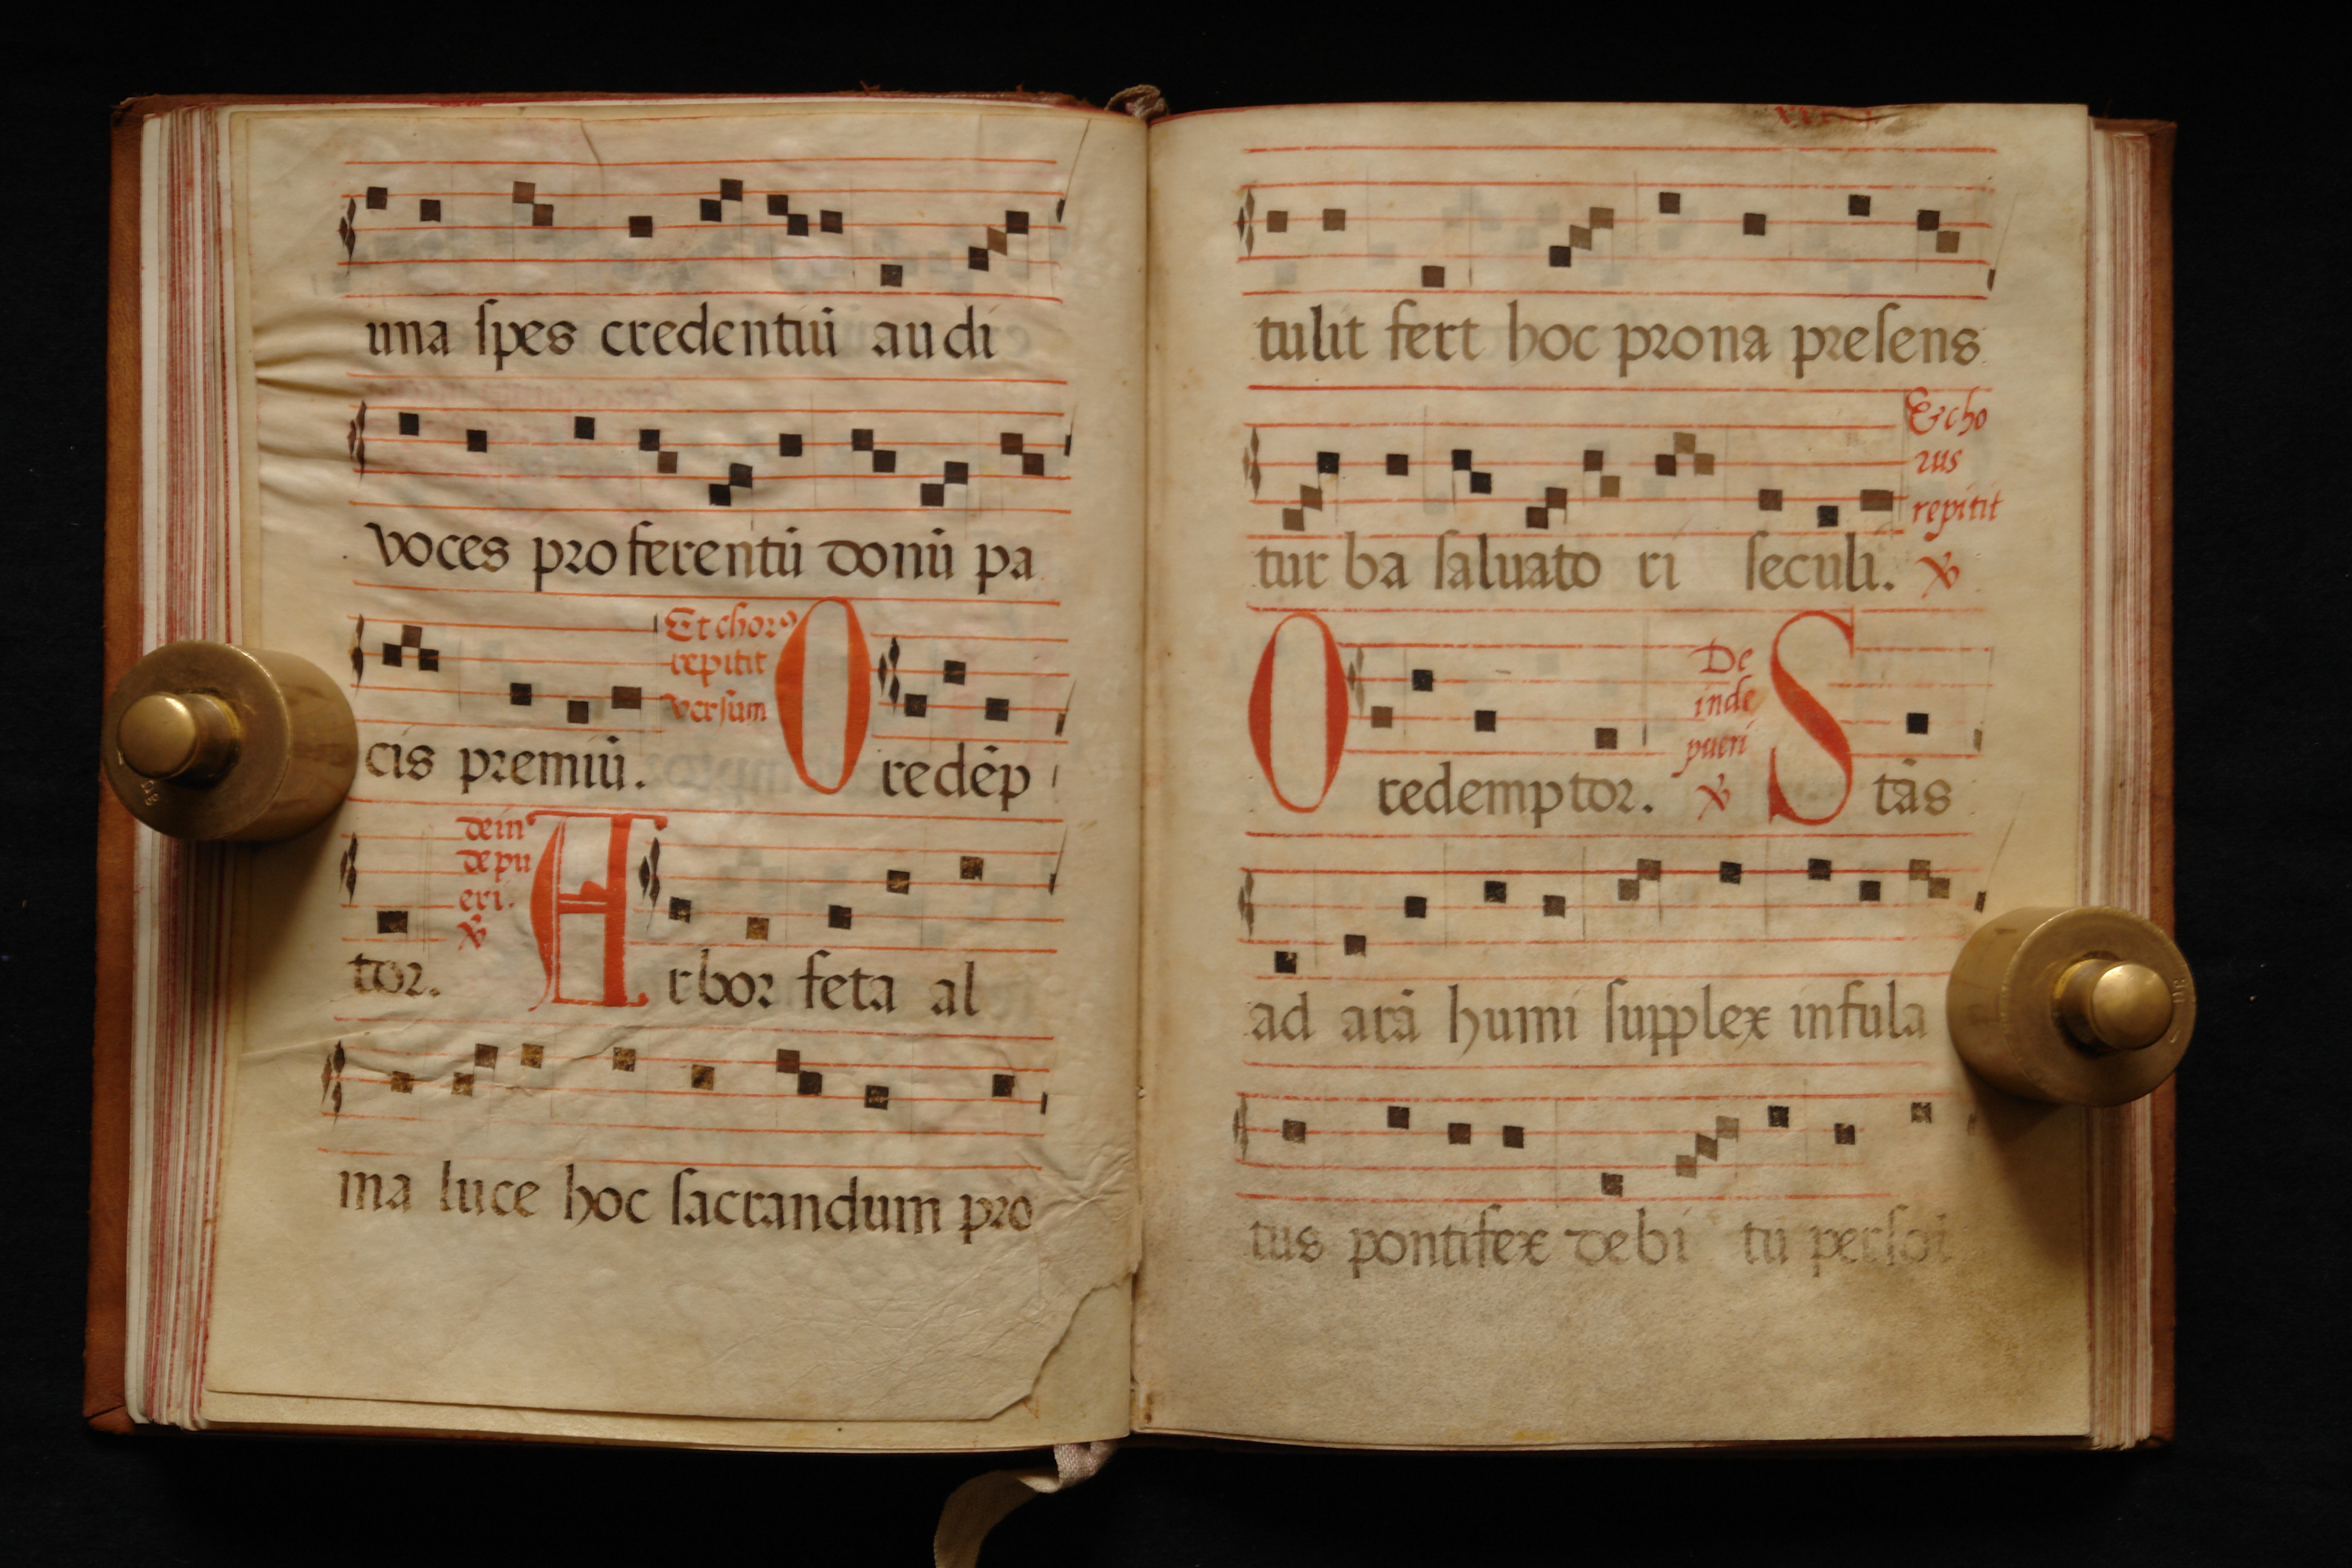 una ſpes credentiū audi
voces proferentū donū pa
Et chorꝰ
repitit
verſum
cis premiū. O redēp
dein
de pu
eri.
℣
tor. Arbor feta al
ma luce hoc ſacrandum pro
tulit fert hoc prona preſens
Et cho
rus
repitit
turba ſaluatori ſeculi. ℣
De
inde
pueri
O redemptor. ℣ Stās
ad arā humi ſupplex infula
tus pontifex debitū perſol